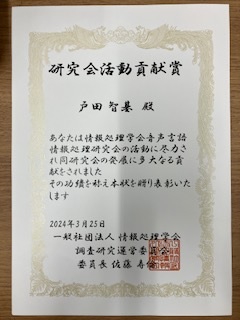 研究会活動貢献賞
戸田智基 殿
あなたは情報処理学会音声言語
情報処理研究会の活動に尽力さ
れ同研究会の発展に多大なる貢
献をされました
その功績を称え本状を贈り表彰いた
します
2024年3月25日
一般社団法人 情報処理学会
調査研究運営委員会
委員長 佐藤 寿倫